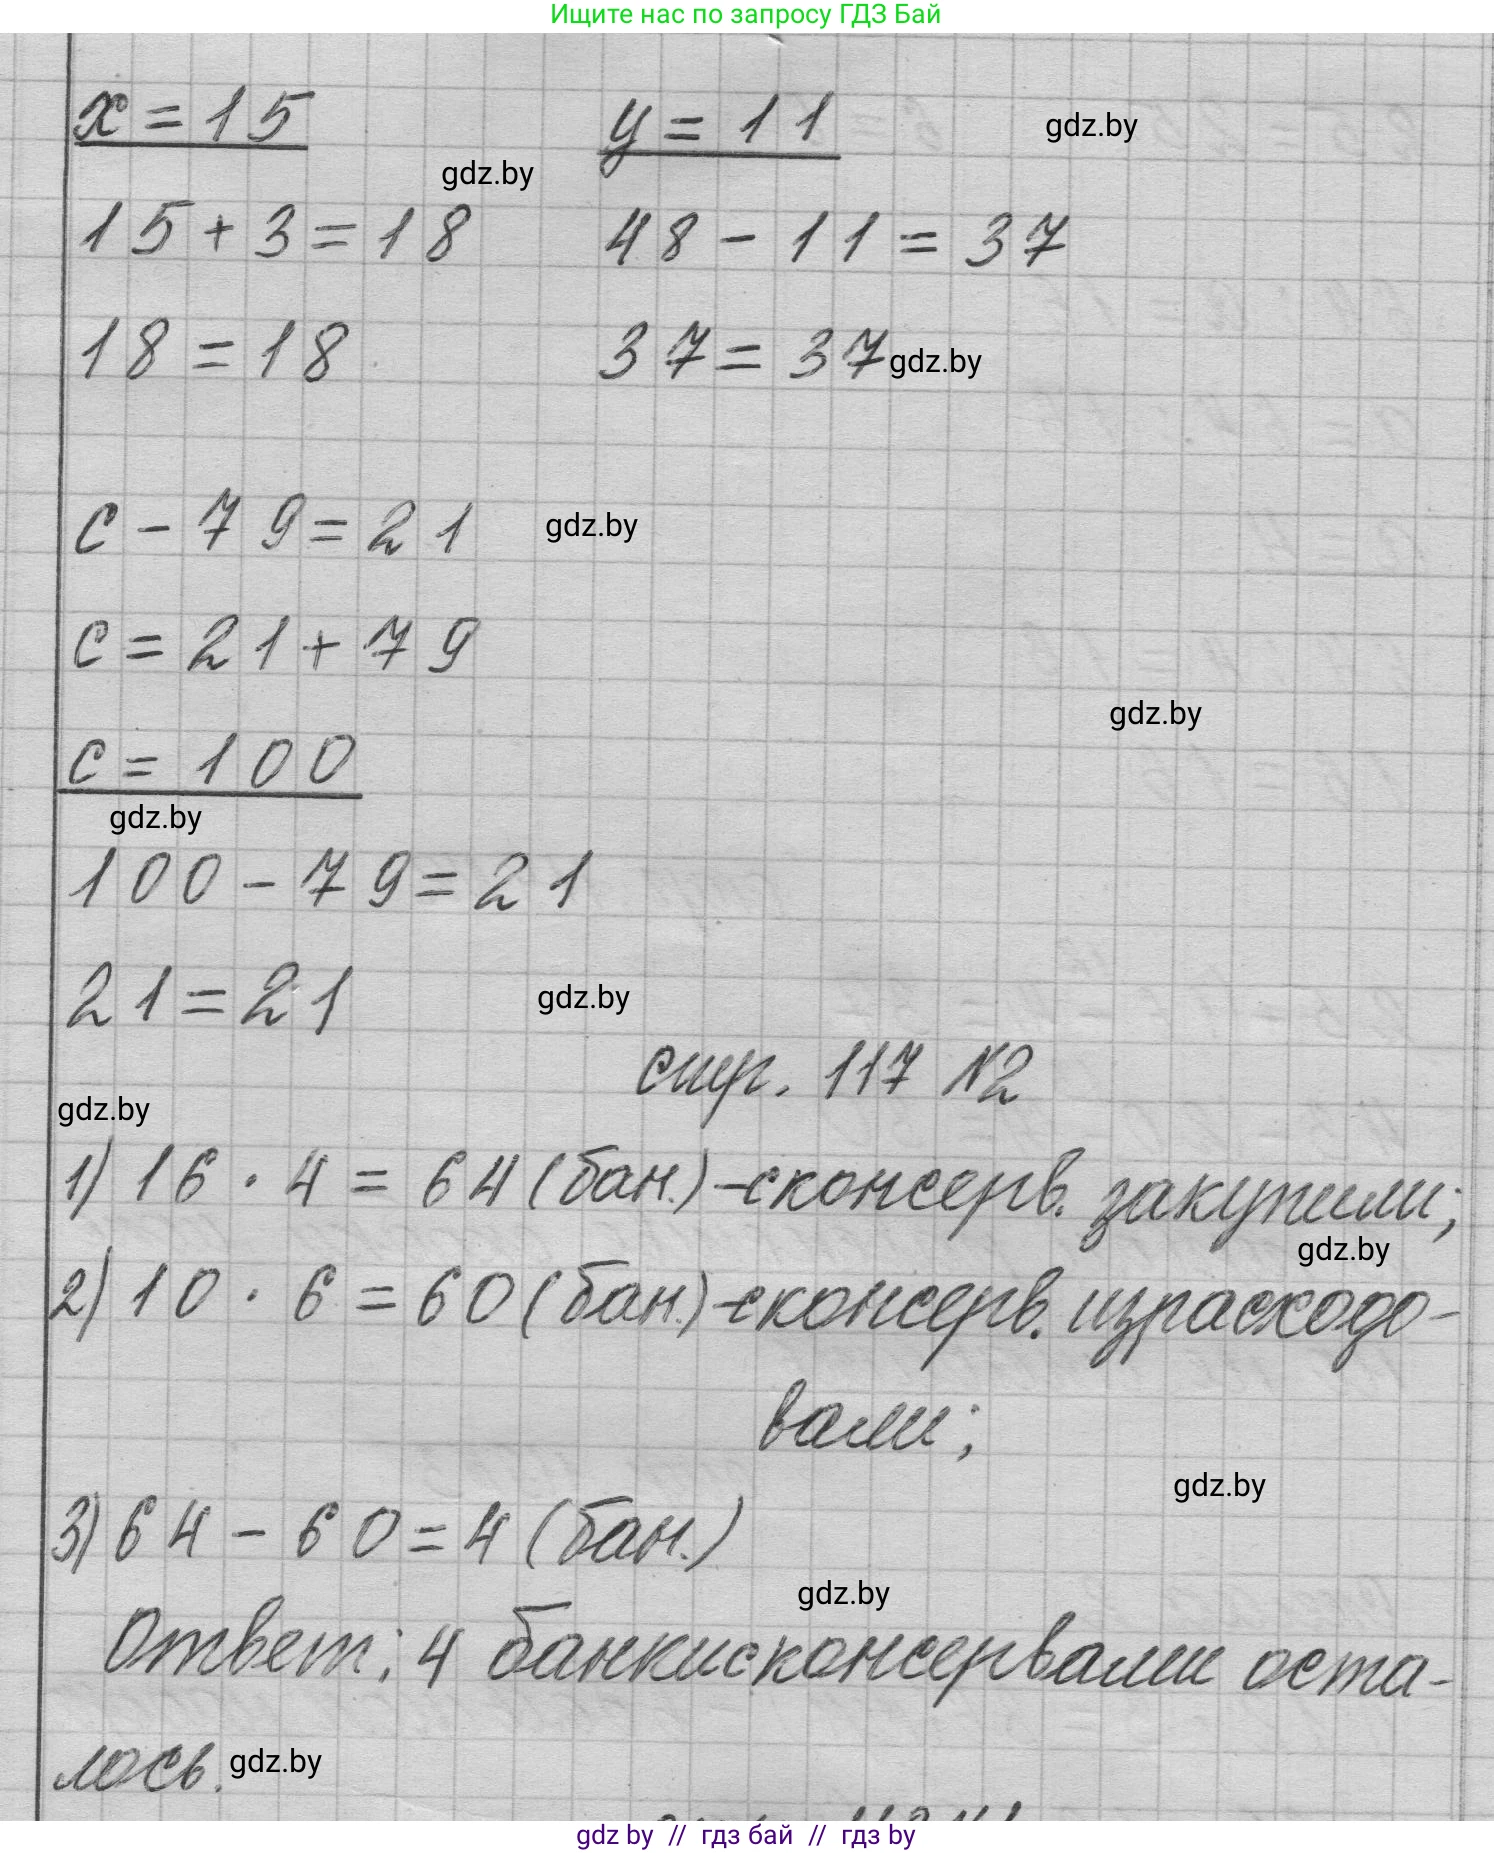 Ищите нас по запросу ГДЗ Бай
x = 15 y = 11 gdz.by
gdz.by
15 + 3 = 18 48 - 11 = 37
18 = 18 37 = 37 gdz.by
c - 79 = 21 gdz.by
c = 21 + 79
gdz.by
c = 100
gdz.by
100 - 79 = 21
21 = 21 gdz.by
стр. 117 №2
gdz.by
1) 16 · 4 = 64 (бан.) - с консерв. закупили;
gdz.by
2) 10 · 6 = 60 (бан.) - с консерв. израсходо-
вали;
gdz.by
3) 64 - 60 = 4 (бан.)
gdz.by
Ответ: 4 банки с консервами оста-
лось. gdz.by
gdz by // гдз бай // гдз by